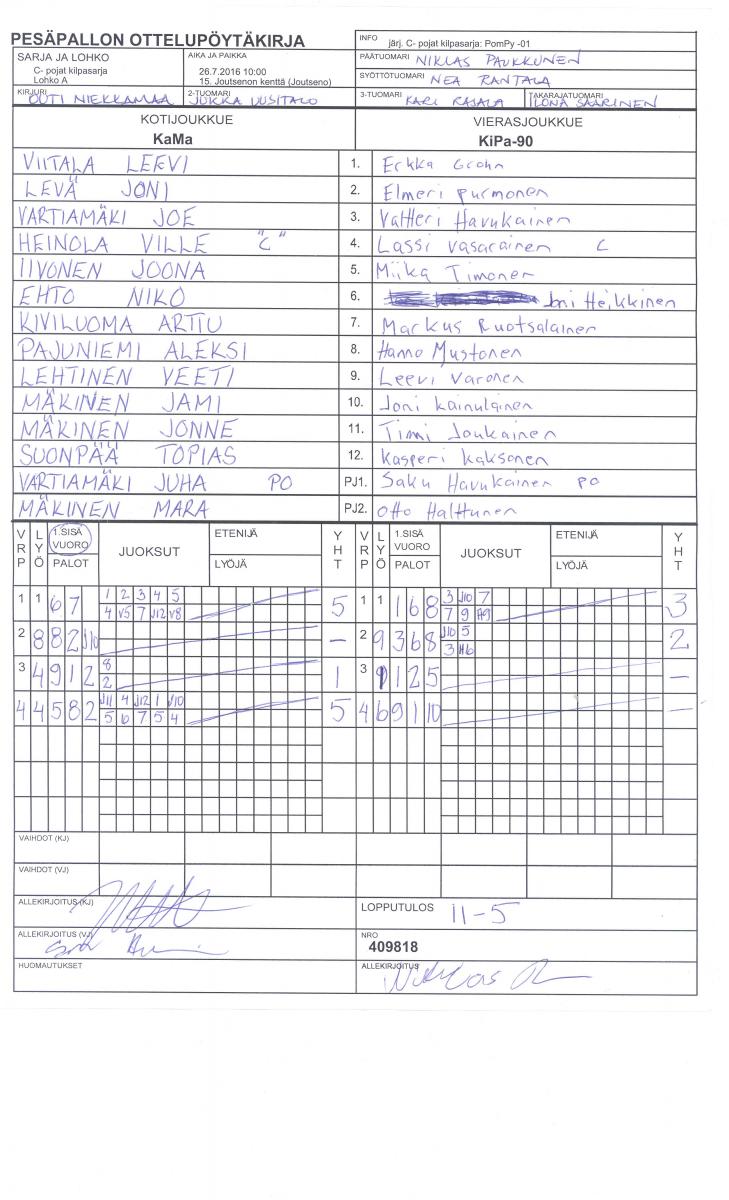 PESÄPALLON OTTELUPÖYTÄKIRJA
INFO järj. C- pojat kilpasarja: PomPy -01
SARJA JA LOHKO
C- pojat kilpasarja
Lohko A
AIKA JA PAIKKA
26.7.2016 10:00
15. Joutsenon kenttä (Joutseno)
PÄÄTUOMARI NIKLAS PAUKKUNEN
SYÖTTÖTUOMARI NEA RANTALA
KIRJURI OUTI NIEKKAMAA
2-TUOMARI JUKKA UUSITALO
3-TUOMARI KARI RASALA
TAKARAJATUOMARI ILONA SAARINEN
KOTIJOUKKUE VIERASJOUKKUE
KaMa KiPa-90
VIITALA LEEVI 1. Erkka Grohn
LEVÄ JONI 2. Elmeri Purmonen
VARTIAMÄKI JOE 3. Valtteri Havukainen
HEINOLA VILLE "C" 4. Lassi Vasarainen C
IIVONEN JOONA 5. Miika Timonen
EHTO NIKO 6. Joni Heikkinen
KIVILUOMA ARTTU 7. Markus Ruotsalainen
PAJUNIEMI ALEKSI 8. Hannu Mustonen
LEHTINEN VEETI 9. Leevi Varonen
MÄKINEN JAMI 10. Joni Kainulainen
MÄKINEN JONNE 11. Timi Joukainen
SUONPÄÄ TOPIAS 12. Kasperi Kaksonen
VARTIAMÄKI JUHA PO PJ1. Saku Havukainen PO
MÄKINEN MARA PJ2. Otto Halttunen
VRP LYÖ 1.SISÄ VUORO PALOT JUOKSUT ETENIJÄ LYÖJÄ YHT VRP LYÖ 1.SISÄ VUORO PALOT JUOKSUT ETENIJÄ LYÖJÄ YHT
1 1 6 7 1 2 3 4 5 5 1 1 1 6 8 3 J10 7 3
4 V5 7 J12 V8 7 9 H9
2 8 8 2 J10 – 2 9 3 6 8 J10 5 2
3 H6
3 4 9 1 2 8 1 3 9 1 2 5 –
2
4 4 5 8 2 J11 4 J12 1 J10 5 4 6 9 1 10 –
5 6 7 5 4
VAIHDOT (KJ)
VAIHDOT (VJ)
ALLEKIRJOITUS (KJ)
LOPPUTULOS 11-5
ALLEKIRJOITUS (VJ)
NRO
409818
HUOMAUTUKSET
ALLEKIRJOITUS